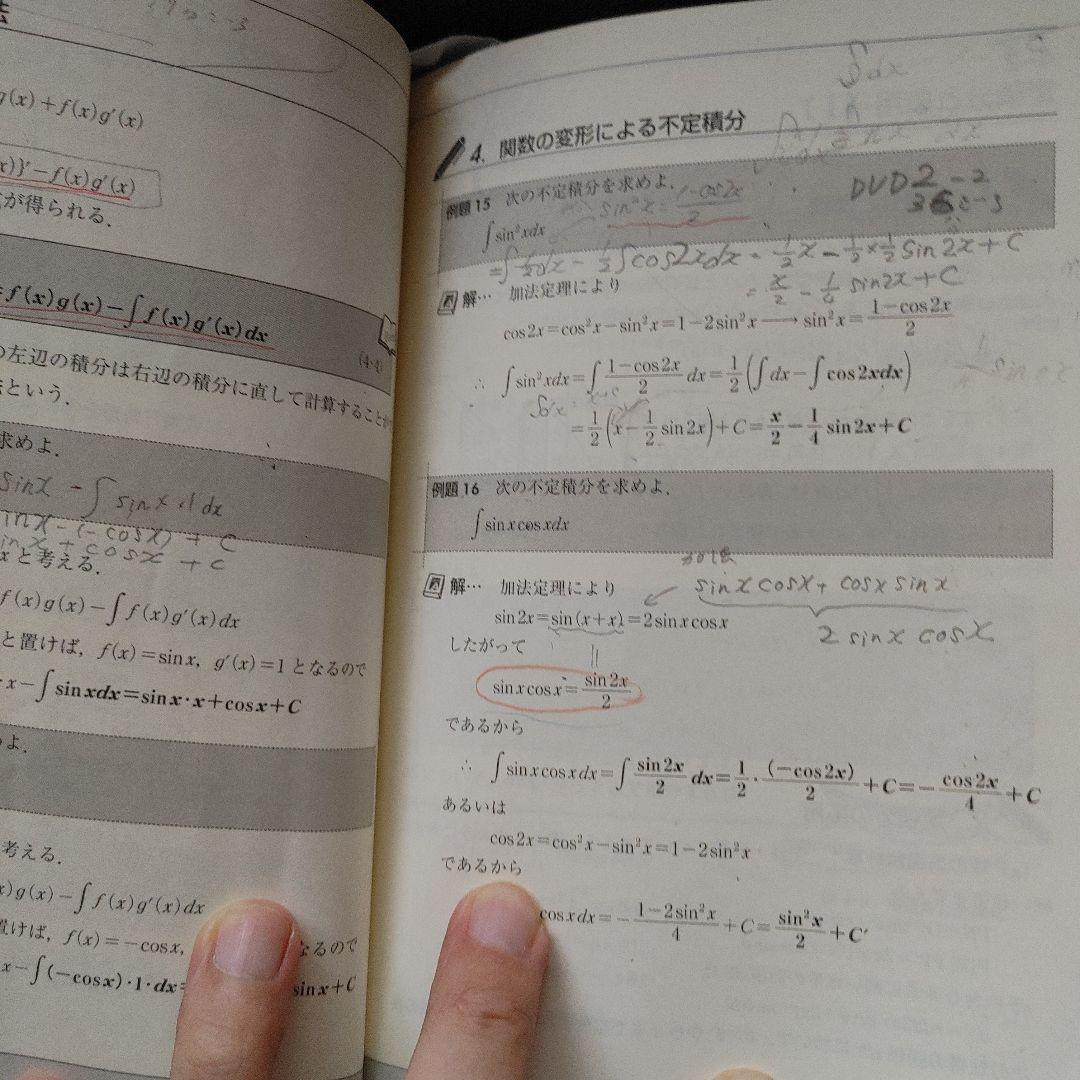 法
g(x)+f(x)g′(x)
x)}′−f(x)g′(x)
が得られる．
f(x)g(x)−∫f(x)g′(x)dx
(4・4)
の左辺の積分は右辺の積分に直して計算すること
という．
求めよ．
sinx −∫sinx・1dx
x−(−cosx)+C
x+cosx+C
xと考える．
f(x)g(x)−∫f(x)g′(x)dx
と置けば，f(x)=sinx，g′(x)=1となるので
x−∫sinxdx=sinx・x+cosx+C
よ．
考える．
x)g(x)−∫f(x)g′(x)dx
置けば，f(x)=−cosx，
なるので
x−∫(−cosx)・1・dx=
sinx+C
∫dx
4．関数の変形による不定積分
例題15 次の不定積分を求めよ．
sin²x=(1−cos2x)/2
DVD2−2
∫sin²xdx
=∫½dx−½∫cos2xdx=½x−½×½sin2x+C
=x/2−¼sin2x+C
解… 加法定理により
cos2x=cos²x−sin²x=1−2sin²x⟶sin²x=(1−cos2x)/2
∴ ∫sin²xdx=∫(1−cos2x)/2 dx=1/2(∫dx−∫cos2xdx)
=1/2(x−1/2 sin2x)+C=x/2−1/4 sin2x+C
例題16 次の不定積分を求めよ．
∫sinxcosxdx
解… 加法定理により
sinxcosx+cosxsinx
sin2x=sin(x+x)=2sinxcosx
2sinxcosx
したがって
sinxcosx=sin2x/2
であるから
∴ ∫sinxcosxdx=∫sin2x/2 dx=1/2・(−cos2x)/2+C=−cos2x/4+C
あるいは
cos2x=cos²x−sin²x=1−2sin²x
であるから
cosxdx=−(1−2sin²x)/4+C=sin²x/2+C′